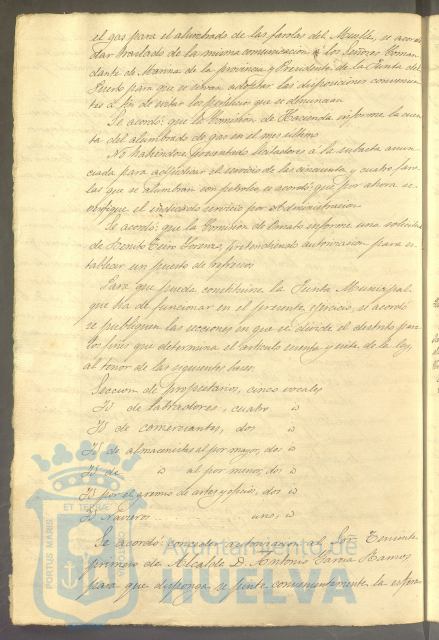 el gas para el alumbrado de las farolas del Muelle, se acordó
dar traslado de la misma comunicacion á los Señores Coman
dante de Marina de la provincia y Presidente de la Junta del
Puerto para que se sirvan adoptar las disposiciones convenien
tes á fin de evitar los perjuicios que se denuncian
Se acordó: que la Comision de Hacienda informe la cuen
ta del alumbrado de gas en el mes último
No habiéndose presentado licitadores á la subasta anun
ciada para adjudicar el servicio de las cincuenta y cuatro faro
las que se alumbran con petroleo, se acordó: que por ahora se
verifique el indicado servicio por administracion
Se acordó: que la Comision de Ornato informe una solicitud
de Benito Lorenzo, pretendiendo autorizacion para es
tablecer un puesto de refrescos
Para que pueda constituirse la Junta Municipal
que ha de funcionar en el presente ejercicio, se acordó
se publiquen las secciones en que se divide el distrito para
los fines que determina el artículo sesenta y siete de la ley,
al tenor de las siguientes bases
Seccion de propietarios, cinco vocales
Id de labradores, cuatro id
Id de comerciantes, dos id
Id de almacenistas al por mayor, dos id
Id de id al por menor, dos id
Id por el gremio de artes y oficios, dos id
Id Navieros uno, id
Se acordó: conceder autorizacion al Señor Teniente
primero de Alcalde D. Antonio Ramos
para que disponga se pinte convenientemente la
PORTUS MARIS
ET TERRÆ
Ayuntamiento de
HUELVA